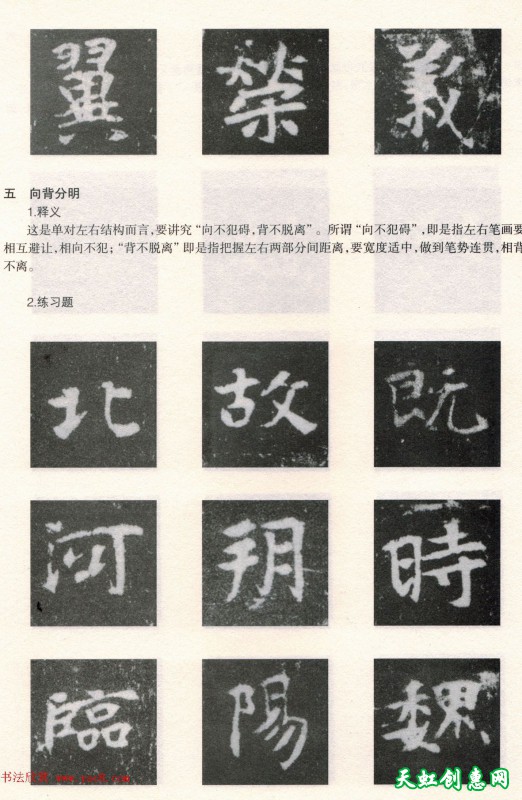 翼 榮 義
五 向背分明
1.释义
这是单对左右结构而言,要讲究“向不犯碍,背不脱离”。所谓“向不犯碍”,即是指左右笔画要
相互避让,相向不犯;“背不脱离”即是指把握左右两部分间距离,要宽度适中,做到笔势连贯,相背
不离。
2.练习题
北 故 既
河 明 時
臨 陽 魏
书法欣赏
天虹创惠网